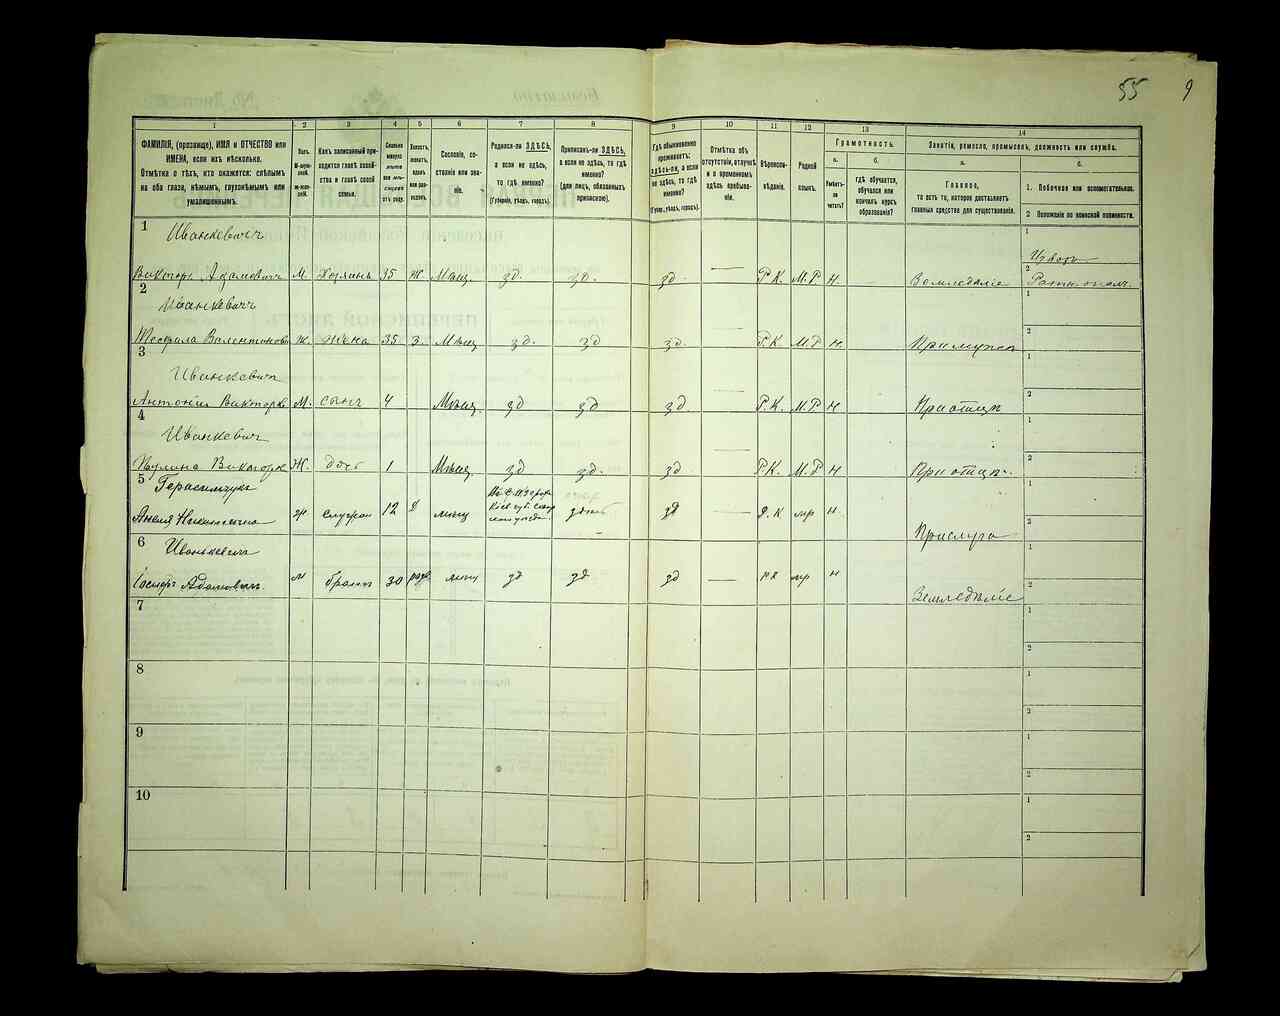 55 9
1 2 3 4 5 6 7 8 9 10 11 12 13 14
ФАМИЛІЯ, (прозвище), ИМЯ и ОТЧЕСТВО или
ИМЕНА, если ихъ нѣсколько.
Отмѣтка о тѣхъ, кто окажется: слѣпымъ
на оба глаза, нѣмымъ, глухонѣмымъ или
умалишеннымъ.
Полъ.
М-мужской.
Ж-женскій.
Какъ записанный приходится главѣ хозяйства и главѣ своей семьи.
Сколько минуло лѣтъ или мѣсяцевъ отъ роду.
Холостъ, женатъ, вдовъ или разведенъ.
Сословіе, состояніе или званіе.
Родился-ли ЗДѢСЬ,
а если не здѣсь,
то гдѣ именно?
(Губернія, уѣздъ, городъ).
Приписанъ-ли ЗДѢСЬ,
а если не здѣсь, то гдѣ
именно?
(для лицъ, обязанныхъ
припискою).
Гдѣ обыкновенно
проживаетъ:
здѣсь-ли, а если
не здѣсь, то гдѣ
именно?
(Губер., уѣздъ, городъ).
Отмѣтка объ
отсутствіи, отлучкѣ
и о временномъ
здѣсь пребываніи.
Вѣроисповѣданіе.
Родной
языкъ.
Грамотность.
а.
Умѣетъ-ли
читать?
б.
гдѣ обучается,
обучался или
кончилъ курсъ
образованія?
Занятіе, ремесло, промыселъ, должность или служба.
а.
Главное,
то есть то, которое доставляетъ
главныя средства для существованія.
б.
1 Побочное или вспомогательное.
2 Положеніе по воинской повинности.
1 Иванкевичъ
Викторъ Адамовичъ М. Хозяинъ 35 Ж. Мѣщ. зд. зд. зд — Р.К. М.Р Н. Земледѣліе
1 Извозъ
2 Ратн. ополч.
2 Иванкевичъ
Ж. Жена 35 З. Мѣщ зд. зд зд. — Р.К М.Р Н При мужѣ
3 Иванкевичъ
Антоній Викторов М. Сынъ 4 Мѣщ. зд зд зд. — Р.К. М.Р Н При отцѣ
4 Иванкевич
Ж. дочь 1 Мѣщ. зд зд. зд — Р.К. М.Р Н При отцѣ.
5 Герасимчукъ
Анеля Никитична Ж 12 Д мѣщ зд — Р.К мр Н Прислуга
6 Иванькевичъ
Адамовичъ. м братъ 30 мѣщ зд зд зд — РК мр н Земледѣліе
7
8
9
10